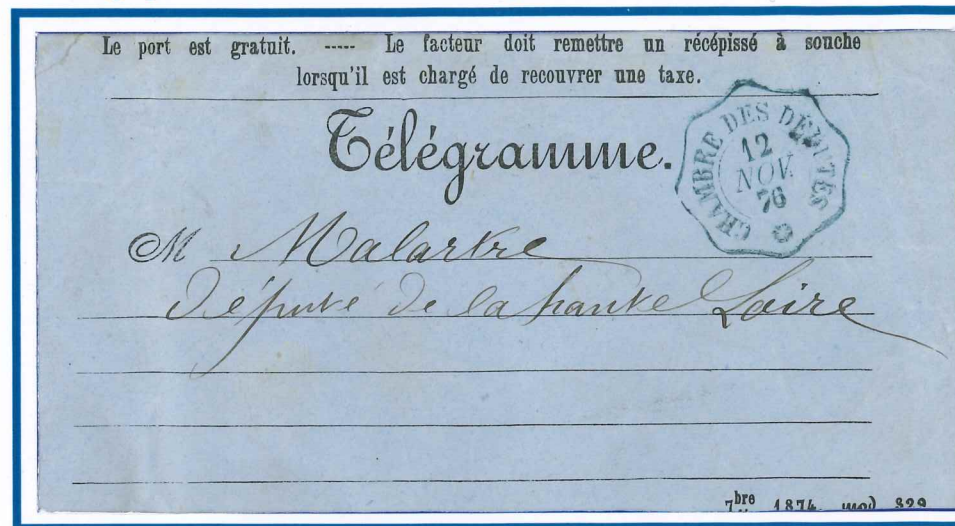 Le port est gratuit. ----- Le facteur doit remettre un récépissé à souche
lorsqu'il est chargé de recouvrer une taxe.
Télégramme.
CHAMBRE DES DÉPUTÉS
12
NOV.
76
M Malartre
Député de la haute Loire
7bre 1874. mod 829